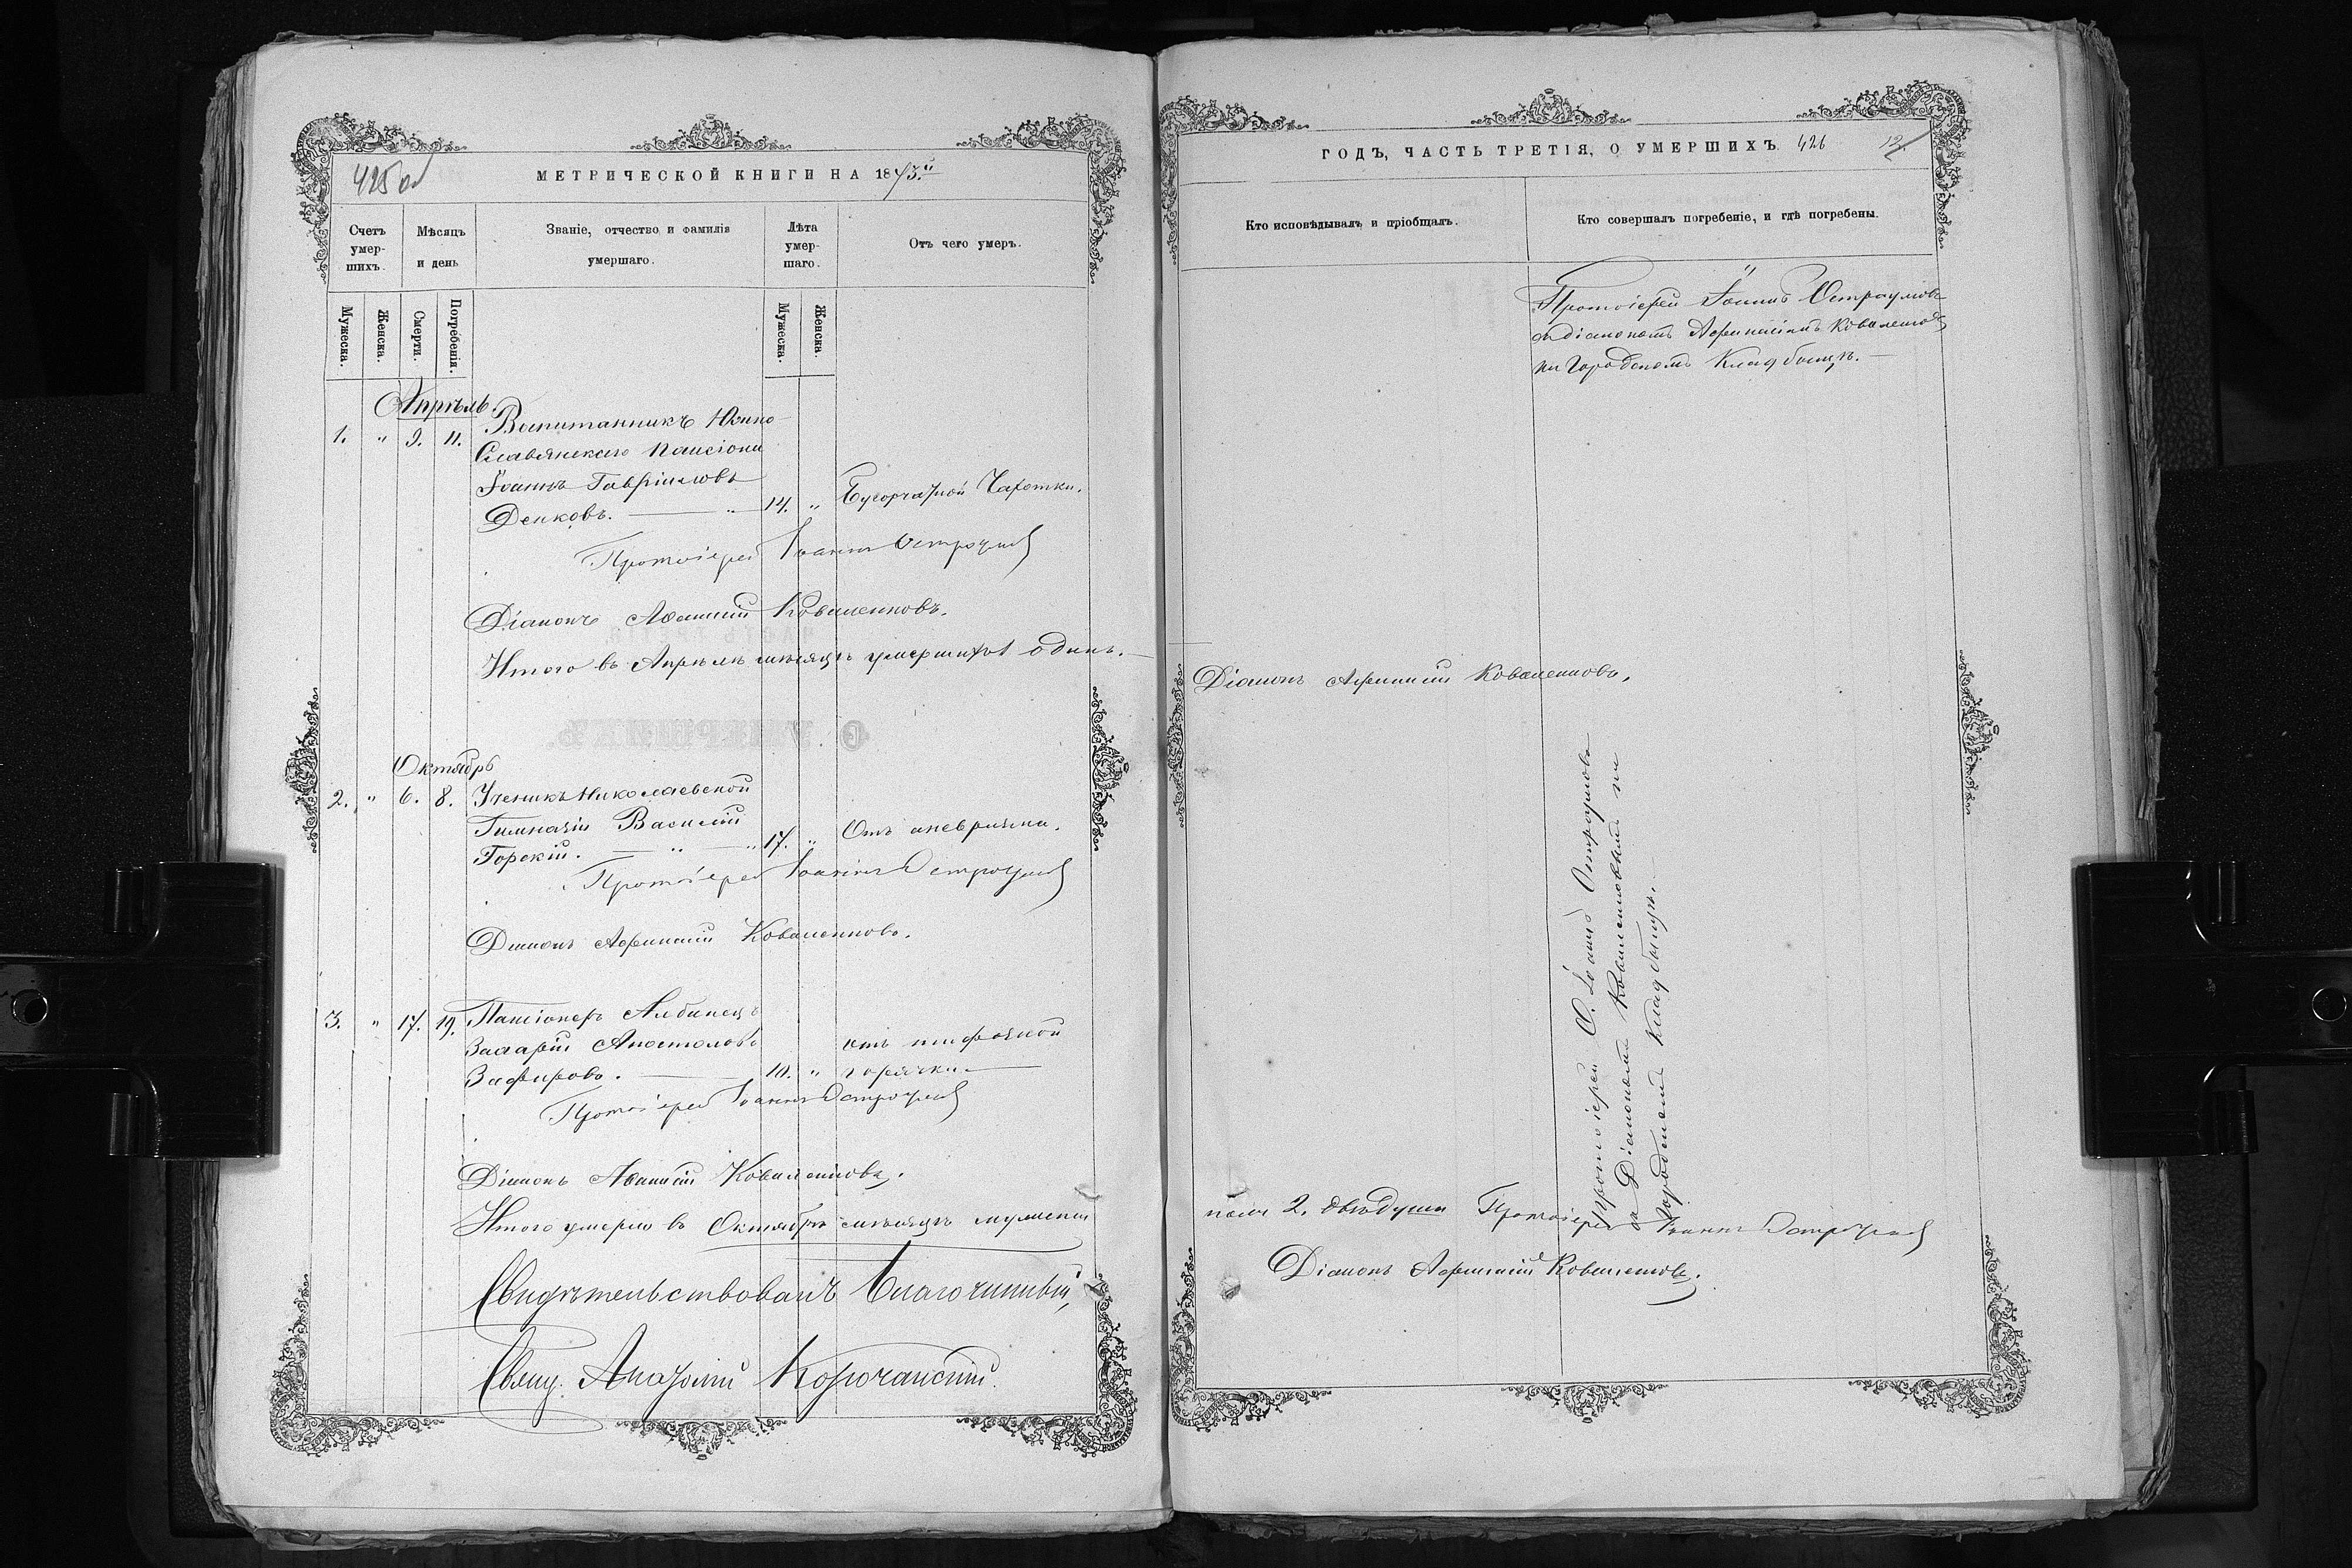 425 об
МЕТРИЧЕСКОЙ КНИГИ НА 1873.й
Счетъ умершихъ.
Мѣсяцъ и день
Званіе, отчество и фамилія умершаго.
Лѣта умершаго.
Отъ чего умеръ.
Мужеска.
Женска.
Смерти.
Погребенія.
Мужеска.
Женска.
Апрѣль.
1. " 9. 11. Воспитанникъ Южно-
Славянскаго Пансіона
Іоаннъ Гавріиловъ
Денковъ. — " — 14. " Бугорчатой Чахотки.
Протоіерей Іоаннъ Остроумовъ
Діаконъ Аѳанасій Коваленковъ.
Итого въ Апрѣлѣ мѣсяцѣ умершихъ одинъ. —
Октябрь
2. " 6. 8. Ученикъ Николаевской
Гимназіи Василій
Горскій. — " — " 17. " Отъ аневризма.
Протоіерей Іоаннъ Остроумовъ
Діаконъ Афанасій Коваленковъ.
3. " 17. 19. Пансіонеръ Албанецъ
Захарій Апостоловъ отъ тифозной
Зафировъ. — 10. " горячки. —
Протоіерей Іоаннъ Остроумовъ
Діаконъ Аѳанасій Коваленковъ.
Итого умерло въ Октябрѣ мѣсяцѣ мужеска
Свидѣтельствовалъ Благочинный,
Свящ.
ГОДЪ, ЧАСТЬ ТРЕТІЯ, О УМЕРШИХЪ 426
12.
Кто исповѣдывалъ и пріобщалъ.
Кто совершалъ погребеніе, и гдѣ погребены.
Протоіерей Іоаннъ Остроумовъ
съ діакономъ Афанасіемъ Коваленковымъ
на Городскомъ Кладбищѣ. —
Діаконъ Афанасій Коваленковъ.
Протоіерей О. Іоаннъ Остроумовъ
съ Діакономъ Коваленковымъ на
городскомъ кладбищѣ. —
пола 2. двѣ души Протоіерей Іоаннъ Остроумовъ
Діаконъ Афанасій Коваленковъ.